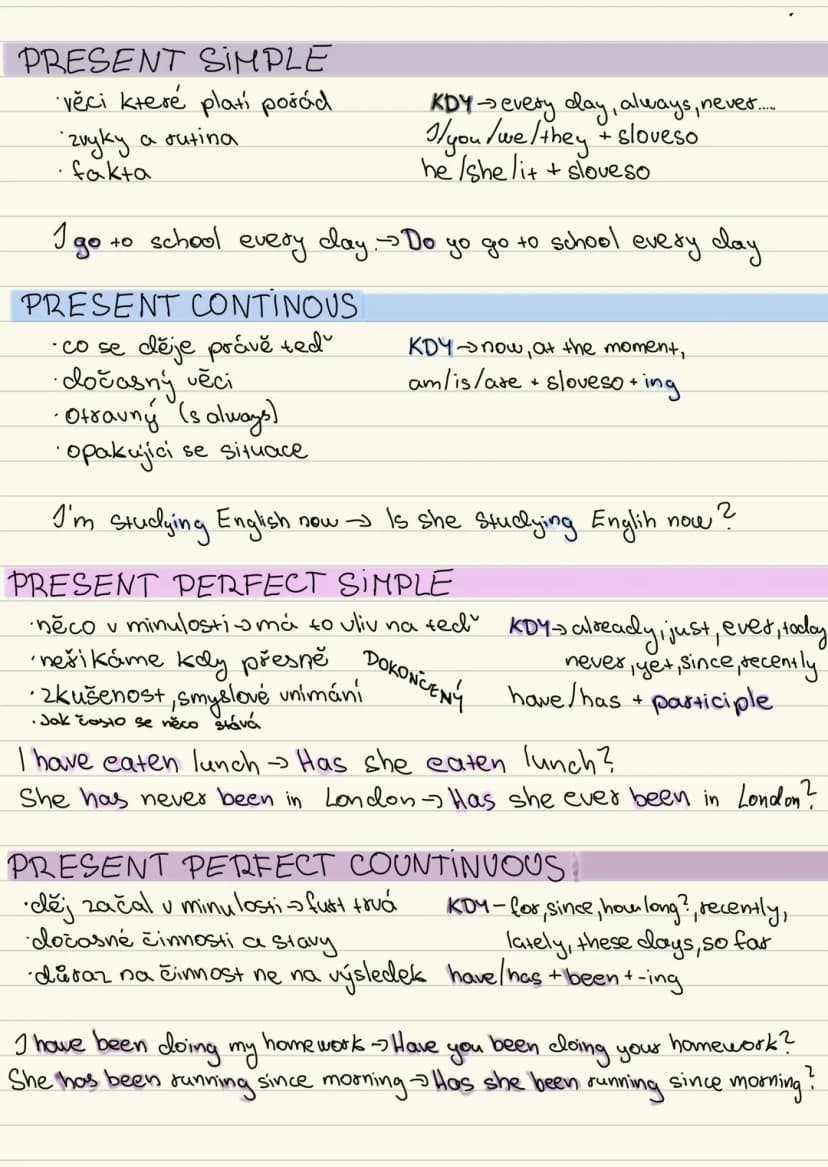 PRESENT SIMPLE
·věci které platí pořád KDY→every day, always, never.....
·zvyky a rutina I/you/we/they + sloveso
·fakta he/she/it + sloveso
I go to school every day.→Do yo go to school every day
PRESENT CONTINOUS
·co se děje právě teď KDY→now, at the moment,
·dočasný věci am/is/are + sloveso + ing
·otravný (s always)
·opakující se situace
I'm studying English now → Is she studying Englih now?
PRESENT PERFECT SIMPLE
·něco v minulosti→má to vliv na teď KDY→already, just, ever, today
·neříkáme kdy přesně DOKONČENÝ never, yet, since, recently
·zkušenost, smyslové vnímání have/has + participle
·Jak často se něco stává
I have eaten lunch → Has she eaten lunch?
She has never been in London→Has she ever been in London?
PRESENT PERFECT COUNTINUOUS
·děj začal v minulosti→furt trvá KDY-for, since, how long?, recently,
·dočasné činnosti a stavy lately, these days, so far
·důraz na činnost ne na výsledek have/has + been + -ing
I have been doing my homework→Have you been doing your homework?
She has been running since morning→Has she been running since morning?